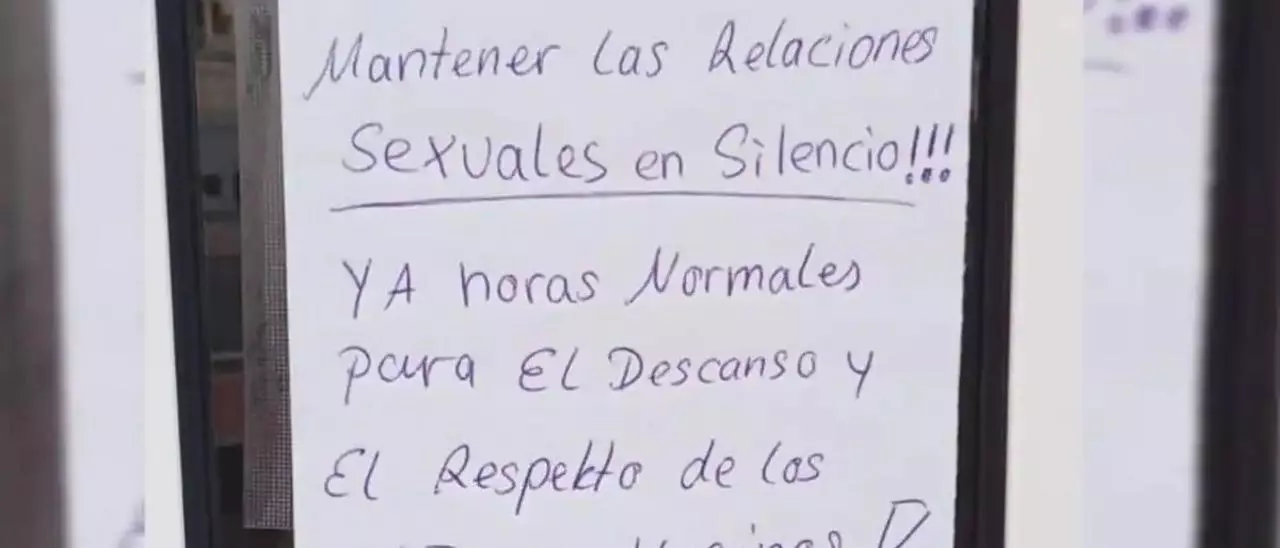 Mantener las Relaciones
Sexuales en Silencio!!!
YA horas Normales
para El Descanso y
El Respekto de los